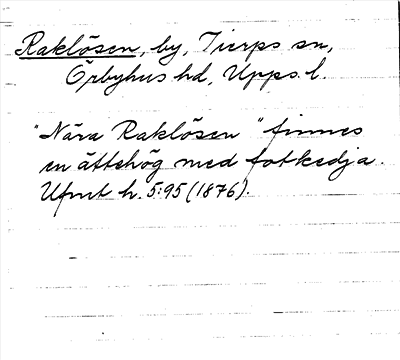 Raklösen, by, Tierps sn,
Örbyhus hd, Upps. l.
"Nära Raklösen" finnes
en ättehög med fotkedja.
Ufmt h. 5:95 (1876).